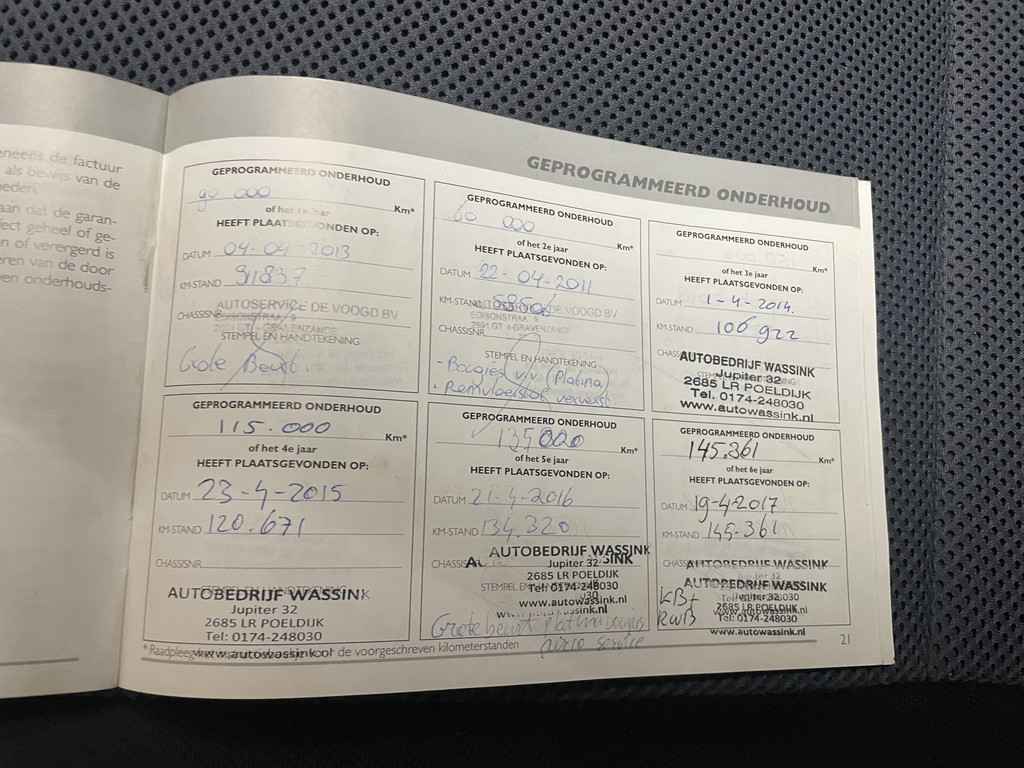 eneens de factuur
als bewijs van de
eden.
aan dat de garan-
fect geheel of ge-
n of verergerd is
eren van de door
en onderhouds-
GEPROGRAMMEERD ONDERHOUD
GEPROGRAMMEERD ONDERHOUD
90 000
of het 1e jaar
Km*
HEEFT PLAATSGEVONDEN OP:
DATUM 04-04-2013
KM-STAND 91837
AUTOSERVICE DE VOOGD BV
CHASSISNR.
STEMPEL EN HANDTEKENING
Grote Beurt.
GEPROGRAMMEERD ONDERHOUD
60 000
Km*
of het 2e jaar
HEEFT PLAATSGEVONDEN OP:
DATUM 22-04-2011
KM-STAND
DE VOOGD BV
CHASSISNR.
STEMPEL EN HANDTEKENING
- Bougies v.v. (Platina)
- Remvloeistof ververst
GEPROGRAMMEERD ONDERHOUD
Km*
of het 3e jaar
HEEFT PLAATSGEVONDEN OP:
DATUM 1-4-2014.
KM-STAND 106 922
AUTOBEDRIJF WASSINK
Jupiter 32
2685 LR POELDIJK
Tel. 0174-248030
www.autowassink.nl
GEPROGRAMMEERD ONDERHOUD
115.000
Km*
of het 4e jaar
HEEFT PLAATSGEVONDEN OP:
DATUM 23-4-2015
KM-STAND 120.671
CHASSISNR.
AUTOBEDRIJF WASSINK
Jupiter 32
2685 LR POELDIJK
Tel: 0174-248030
www.autowassink.nl
GEPROGRAMMEERD ONDERHOUD
135000
Km*
of het 5e jaar
HEEFT PLAATSGEVONDEN OP:
DATUM 21-4-2016
KM-STAND 134.320
AUTOBEDRIJF WASSINK
Jupiter 32
2685 LR POELDIJK
Tel: 0174-248030
www.autowassink.nl
Grote beurt
airco service
GEPROGRAMMEERD ONDERHOUD
145.361
Km*
of het 6e jaar
HEEFT PLAATSGEVONDEN OP:
DATUM 19-4-2017
KM-STAND 145.361
AUTOBEDRIJF WASSINK
AUTOBEDRIJF WASSINK
Jupiter 32
2685 LR POELDIJK
Tel: 0174-248030
www.autowassink.nl
KB+
RWB
* Raadpleeg de voorgeschreven kilometerstanden
21